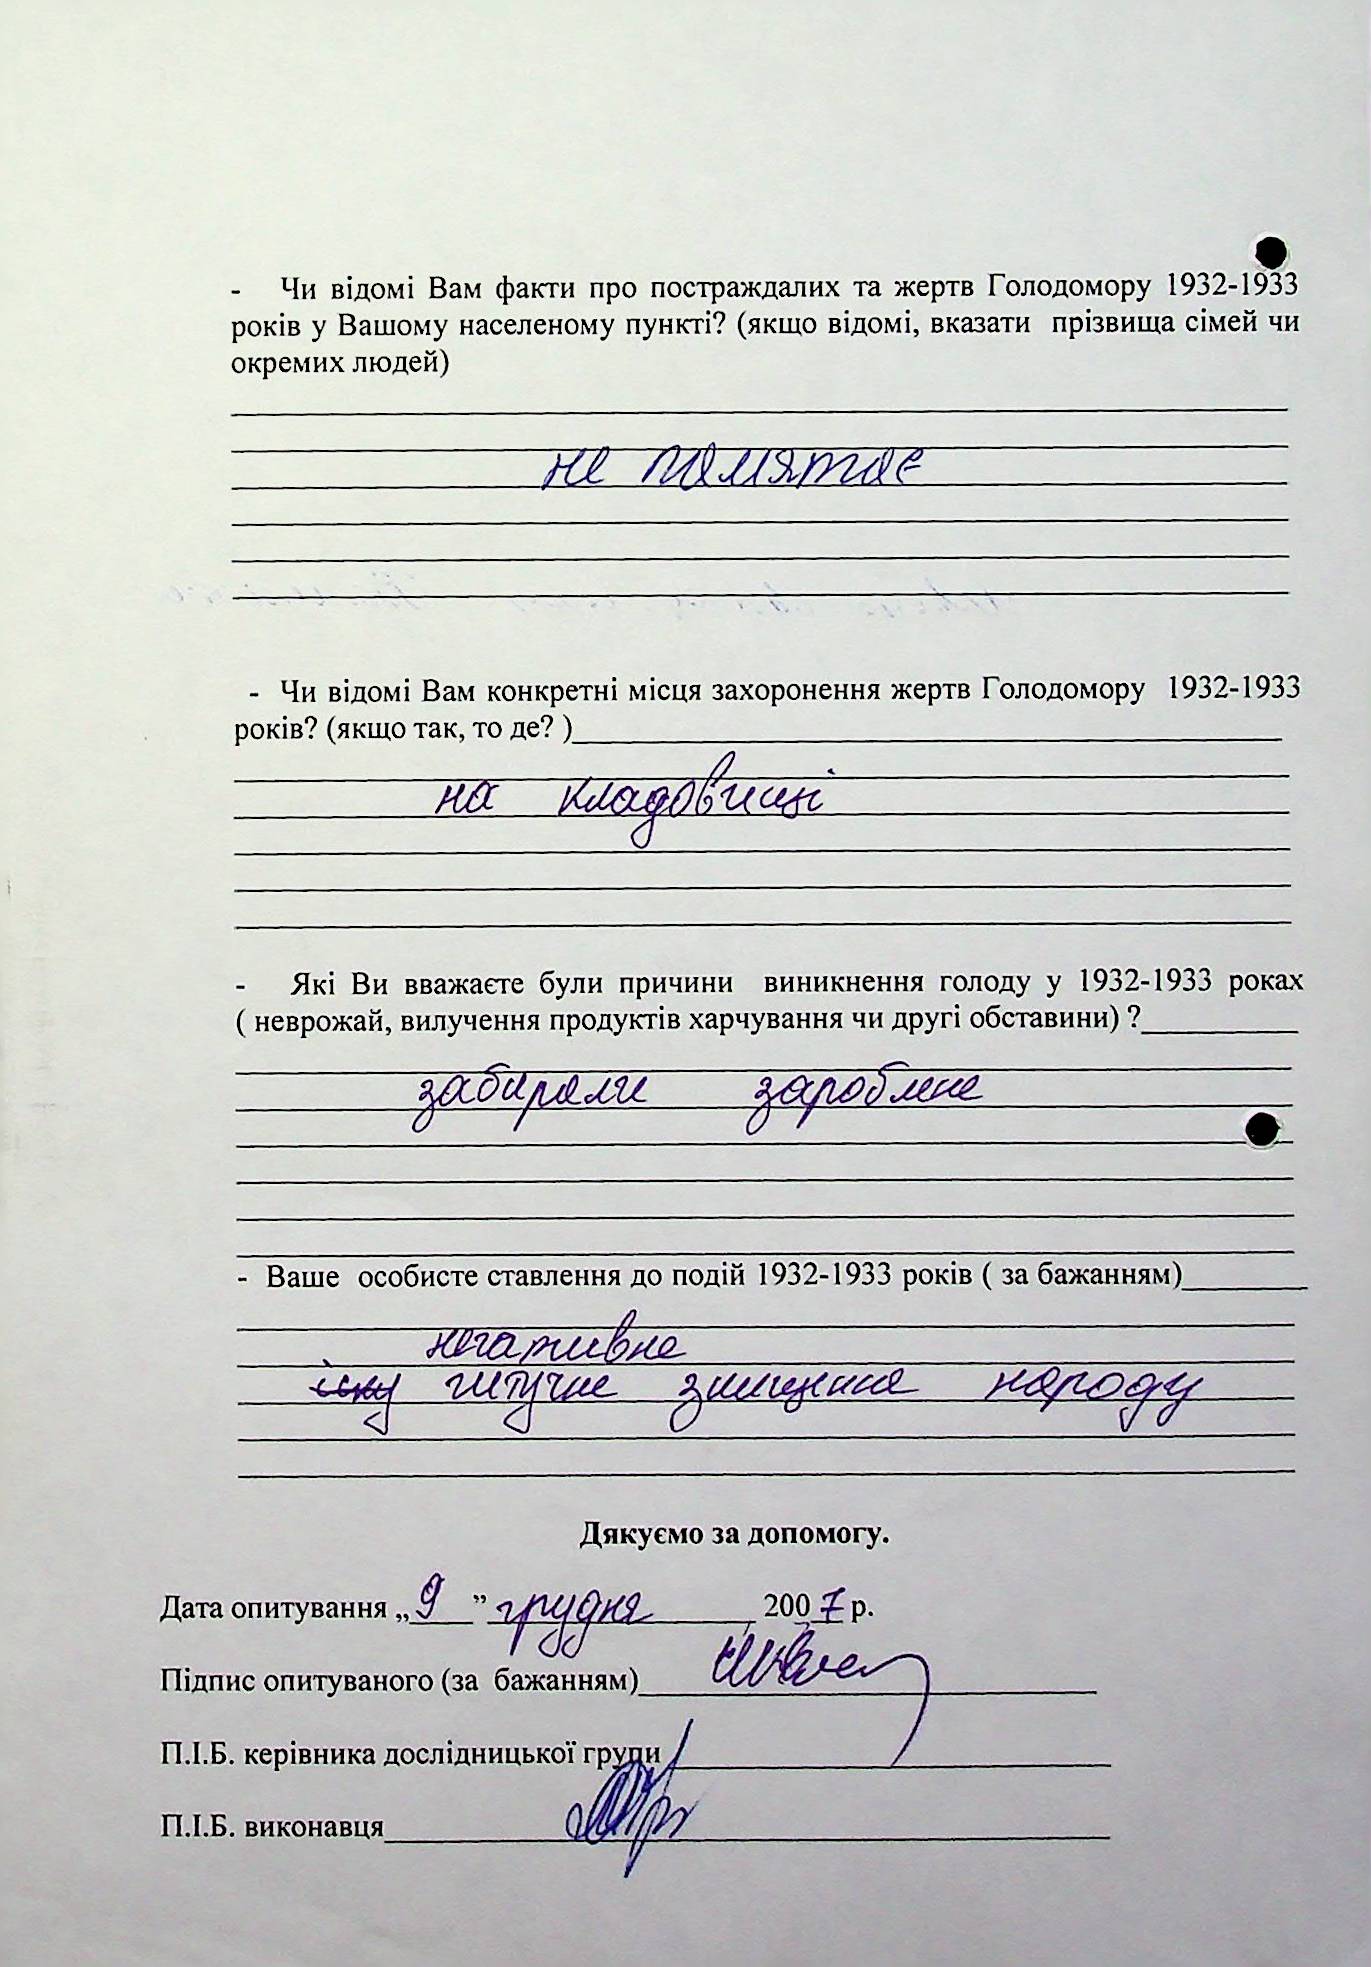 - Чи відомі Вам факти про постраждалих та жертв Голодомору 1932-1933
років у Вашому населеному пункті? (якщо відомі, вказати прізвища сімей чи
окремих людей)
не памятає
- Чи відомі Вам конкретні місця захоронення жертв Голодомору 1932-1933
років? (якщо так, то де? )
на кладовищі
- Які Ви вважаєте були причини виникнення голоду у 1932-1933 роках
( неврожай, вилучення продуктів харчування чи другі обставини) ?
забирали зароблене
- Ваше особисте ставлення до подій 1932-1933 років ( за бажанням)
негативне
штучне знищення народу
Дякуємо за допомогу.
Дата опитування „9” грудня 2007 р.
Підпис опитуваного (за бажанням)
П.І.Б. керівника дослідницької групи
П.І.Б. виконавця